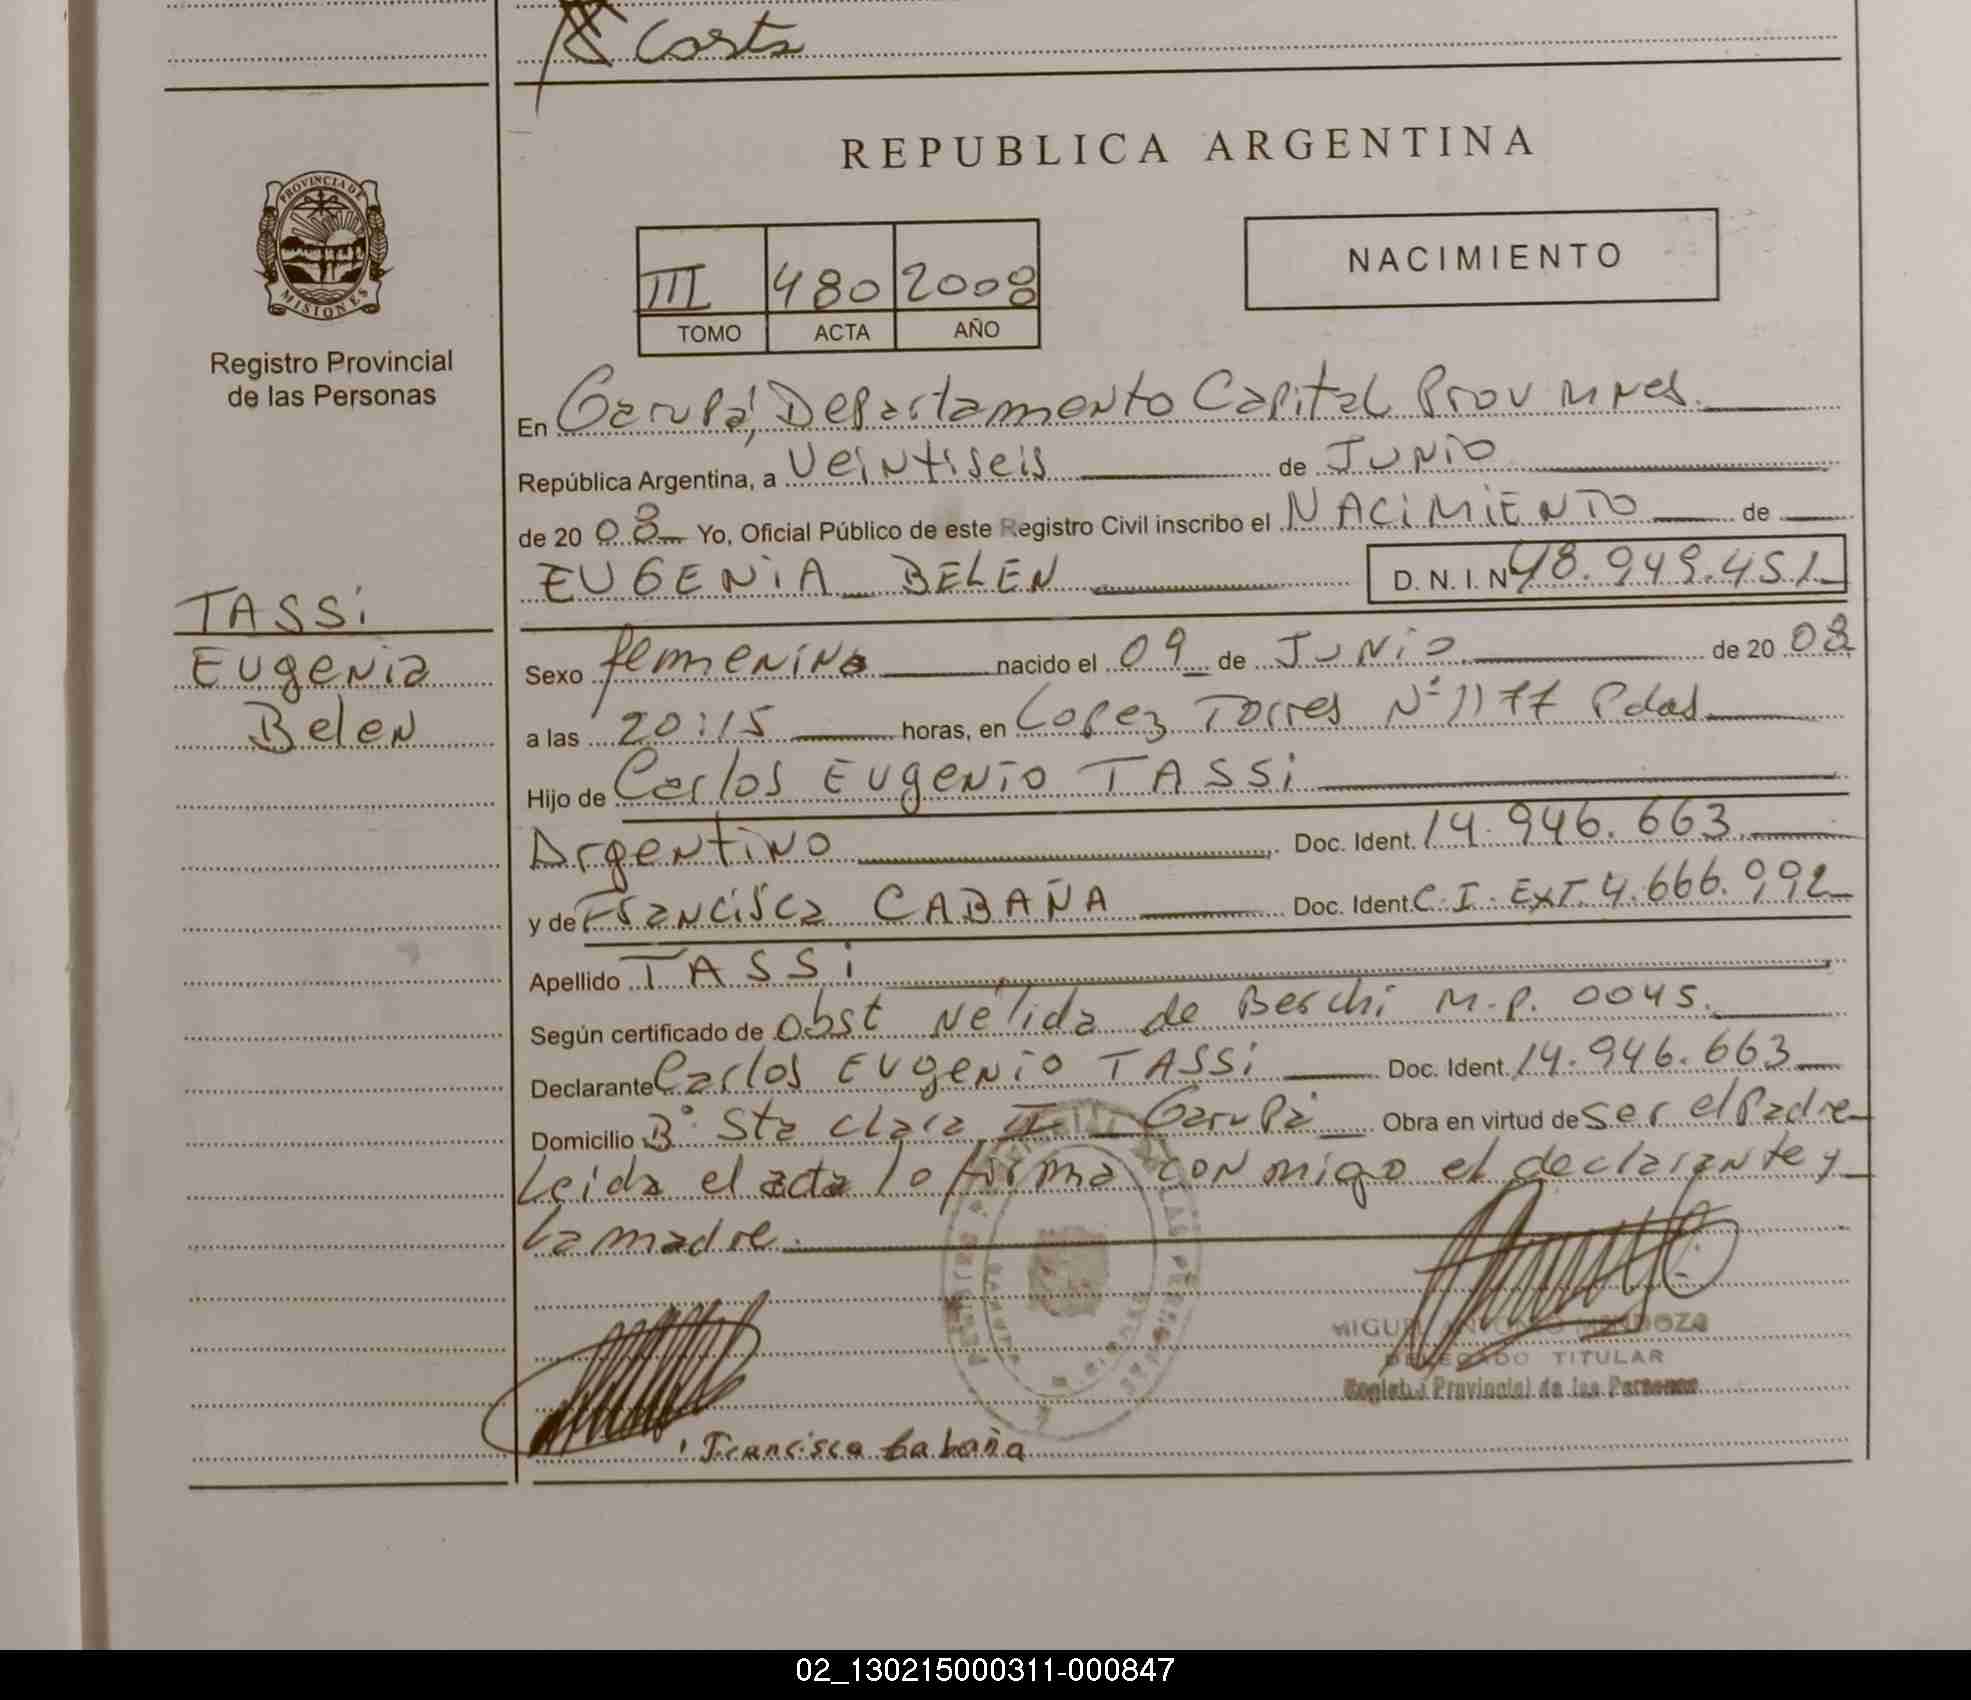 Costa
REPUBLICA ARGENTINA
PROVINCIA DE
MISIONES
Registro Provincial
de las Personas
NACIMIENTO
III 480 2008
TOMO ACTA AÑO
En Garupá, Departamento Capital Prov Mnes.
República Argentina, a Veintiseis de Junio
de 20 08 Yo, Oficial Público de este Registro Civil inscribo el NACIMIENTO de
EUGENIA BELEN D.N.I. Nº 48.949.451
TASSi
Eugenia
Belen
Sexo femenino nacido el 09 de Junio de 20 08
a las 20:15 horas, en Lopez Torres Nº 1177 Pdas
Hijo de Carlos Eugenio TASSi
Argentino Doc. Ident. 14.946.663
y de Francisca CABAÑA Doc. Ident. C.I. Ext. 4.666.992
Apellido TASSi
Según certificado de obst Nélida de Berchi M.P. 0045.
Declarante Carlos Eugenio TASSi Doc. Ident. 14.946.663
Domicilio Bº Sta Clara II Garupá Obra en virtud de ser el Padre
Leida el acta lo firma conmigo el declarante y
la madre.
MIGUEL ANTONIO MENDOZA
DELEGADO TITULAR
Registro Provincial de las Personas
Francisca Cabaña
02_130215000311-000847